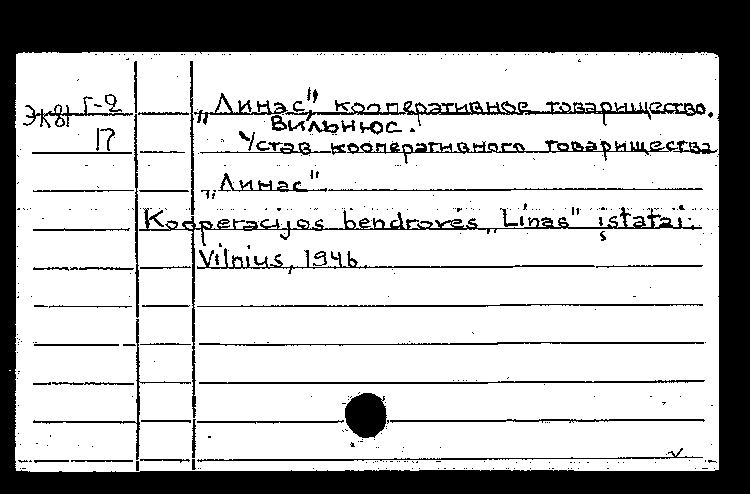 Эк81 Г-2
П
„Линас", кооперативное товарищество.
Вильнюс.
Устав кооперативного товарищества
„Линас"
Kooperacijos bendrovės „Linas" įstatai.
Vilnius, 1946.